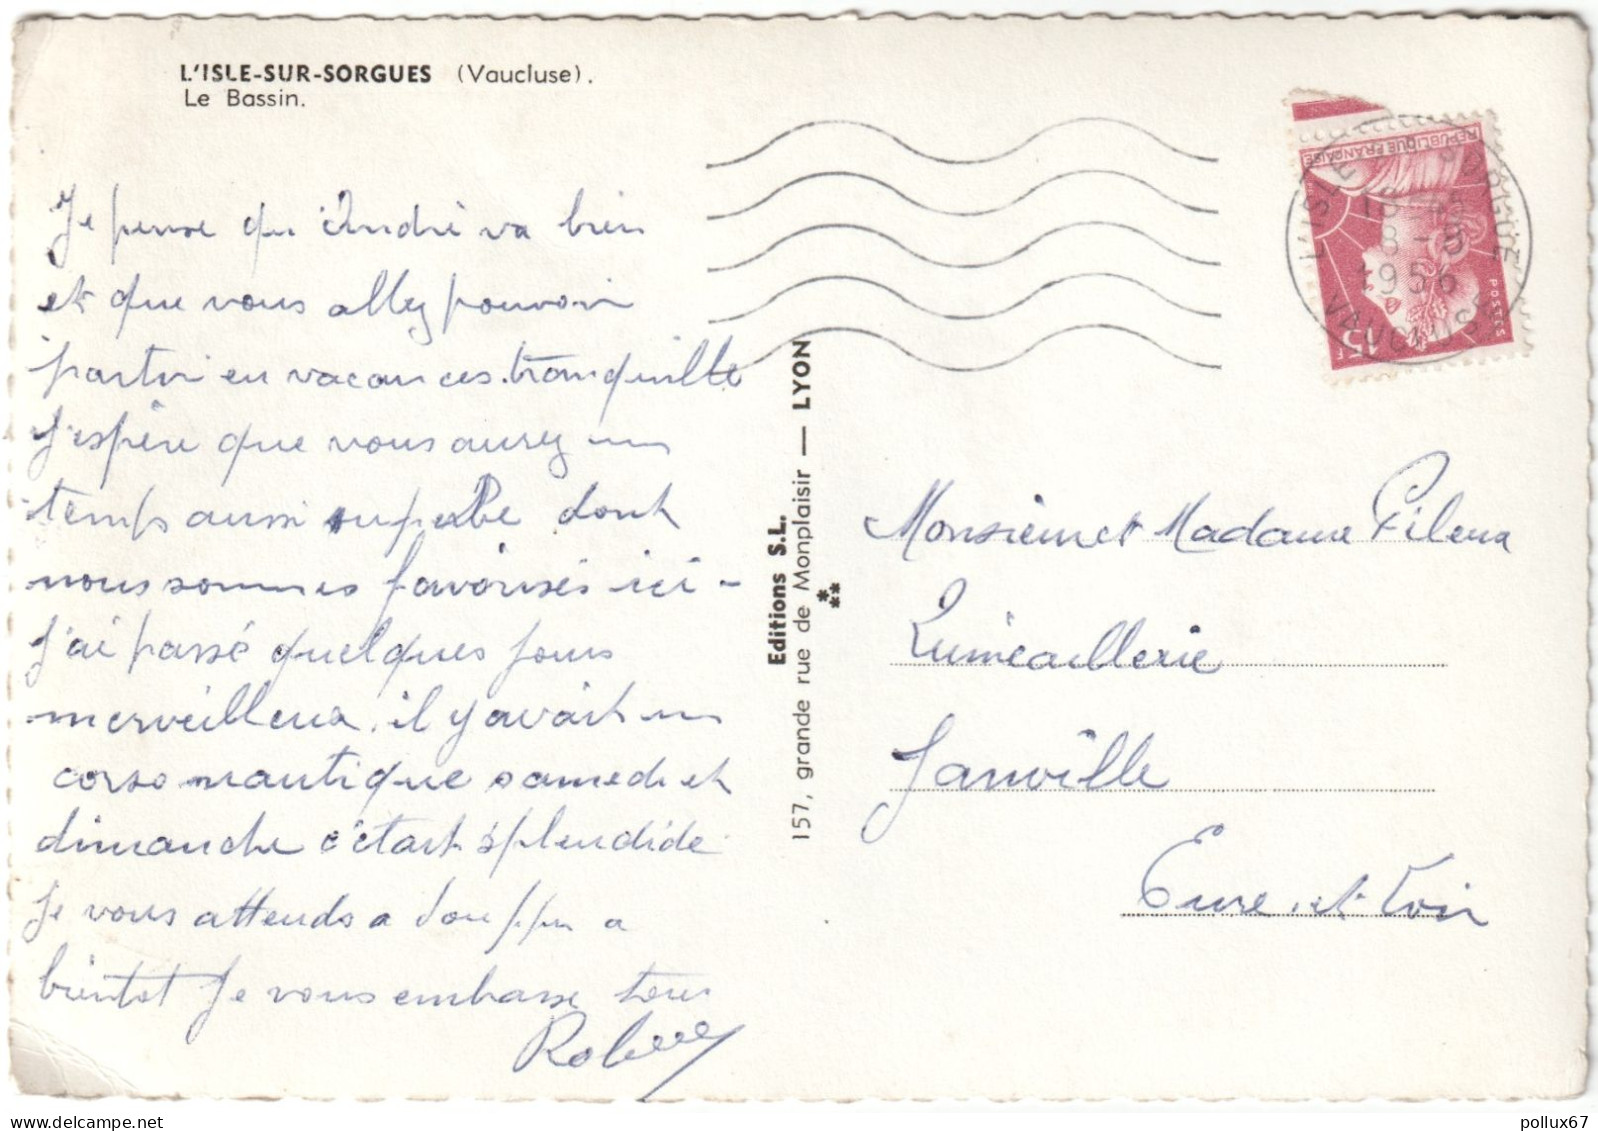 L'ISLE-SUR-SORGUES (Vaucluse).
Le Bassin.
Je pense qu'André va bien
et que vous allez pouvoir
partir en vacances tranquille
J'espère que vous aurez un
temps aussi superbe dont
nous sommes favorisés ici -
J'ai passé quelques jours
merveilleux, il y avait un
corso nautique samedi et
dimanche c'était splendide
Je vous attends a
bientot Je vous embrasse tous
Editions S.L.
157, grande rue de Monplaisir — LYON
REPUBLIQUE FRANÇAISE
POSTES
15F
L'ISLE SORGUE
18-45
8-8
1956
VAUCLUSE
Monsieur et Madame Fileux
Quincaillerie
Janville
Eure et Loir
delcampe.net
pollux67